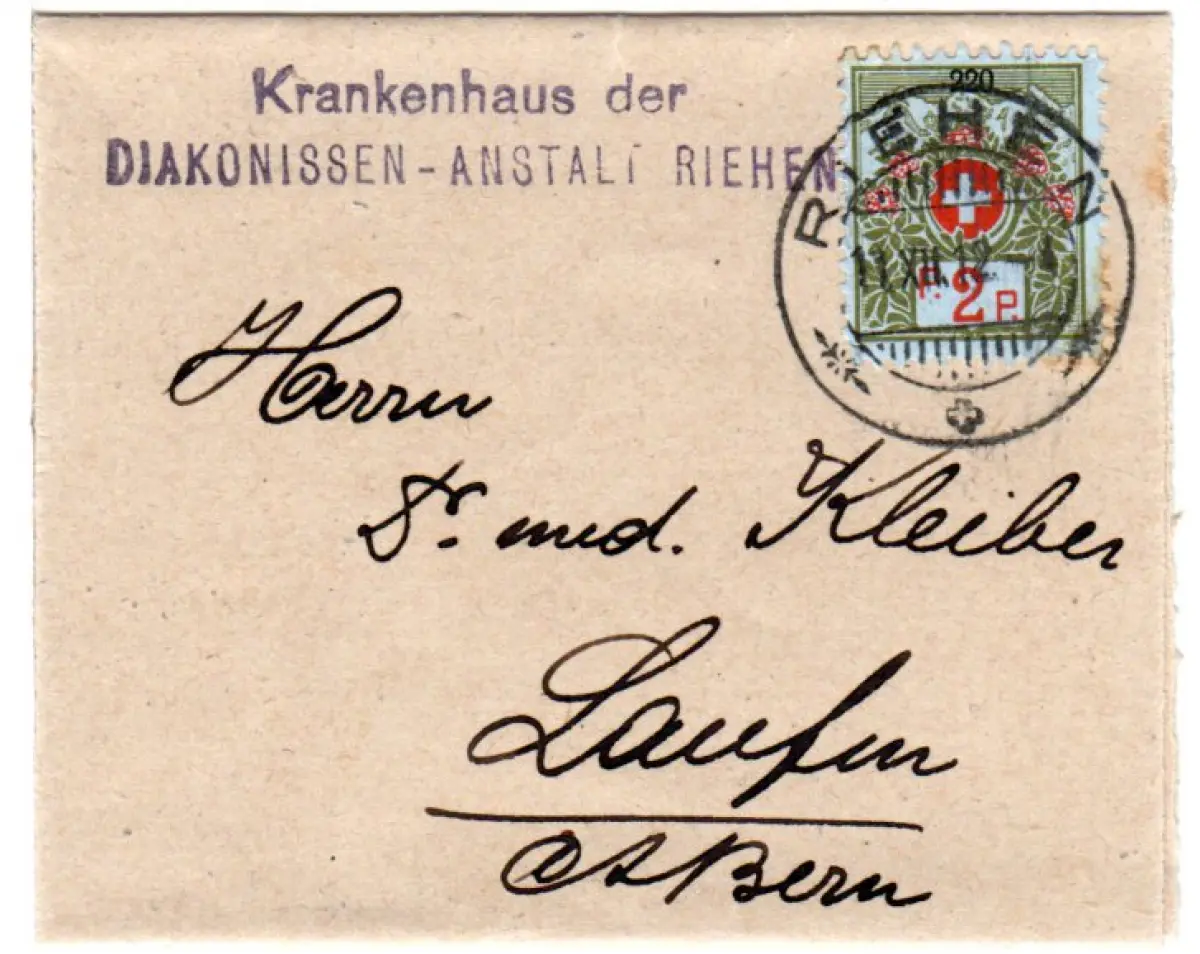 Krankenhaus der
DIAKONISSEN-ANSTALT RIEHEN
220
RIEHEN
11.XII.12.
F. 2 P.
Herrn
Dr. med. Kleiber
Laufen
Ct Bern